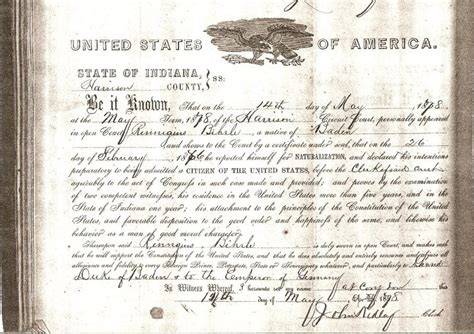 UNITED STATES OF AMERICA.
STATE OF INDIANA, } ss:
Harrison COUNTY,
Be it Known, That on the 14th day of May 1878
at the May Term, 1878, of the Harrison Circuit Court, personally appeared
in open Court Remigius Bihrle a native of Baden
and shows to the Court by a certificate under seal, that on the 26
day of February 1876 he reported himself for NATURALIZATION, and declared his intentions
preparatory to being admitted a CITIZEN OF THE UNITED STATES, before the Clerk of said Court
agreeably to the act of Congress in such case made and provided; and proves by the examination
of two competent witnesses, his residence in the United States more than five years, and in the
State of Indiana one year; his attachment to the principles of the Constitution of the United
States, and favorable disposition to the good order and happiness of the same, and likewise his
behavior as a man of good moral character:
Thereupon said Remigius Bihrle is duly sworn in open Court, and makes oath
that he will support the Constitution of the United States, and that he does absolutely and entirely renounce and abjure all
allegiance and fidelity to every Foreign Prince, Potentate, State or Sovereignty whatever, and particularly to the Grand
Duke of Baden & to the Emperor of Germany
In Witness Whereof, I hereunto set my name at Corydon this
14th day of May 1878
John Ridley Clerk